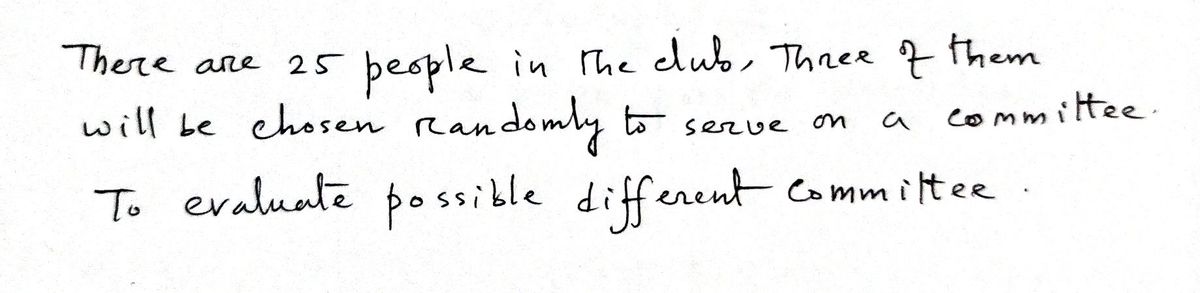 There are 25 people in the club, Three of them
will be chosen randomly to serve on a committee.
To evaluate possible different committee.